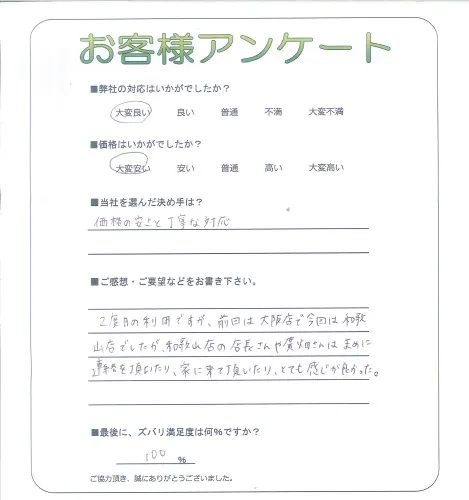 お客様アンケート
■弊社の対応はいかがでしたか？
大変良い 良い 普通 不満 大変不満
■価格はいかがでしたか？
大変安い 安い 普通 高い 大変高い
■当社を選んだ決め手は？
価格の安さと丁寧な対応
■ご感想・ご要望などをお書き下さい。
2度目の利用ですが、前回は大阪店で今回は和歌
山店でしたが、和歌山店の店長さんや濱畑さんはまめに
連絡を頂いたり、家に来て頂いたり、とても感じが良かった。
■最後に、ズバリ満足度は何%ですか？
100 %
ご協力頂き、誠にありがとうございました。